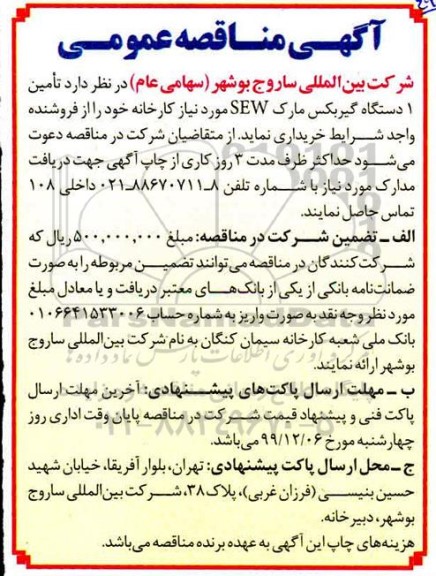 آگهـی منـاقصه عمومـی
شرکت بین‌المللی ساروج بوشهر (سهامی عام) در نظر دارد تأمین
۱ دستگاه گیربکس مارک SEW مورد نیاز کارخانه خود را از فروشنده
واجد شـرایط خریداری نماید. از متقاضیان شرکت در مناقصه دعوت
می‌شـود حداکثر ظرف مدت ۳ روز کاری از چاپ آگهی جهت دریافت
مدارک مورد نیاز با شـماره تلفن ۸ـ۸۸۶۷۰۷۱۱ـ۰۲۱ داخلی ۱۰۸
تماس حاصل نمایند.
الف ـ تضمین شـرکت در مناقصه: مبلغ ۵۰۰,۰۰۰,۰۰۰ ریال که
شـرکت‌کنندگان در مناقصه می‌توانند تضمیـن مربوطه را به صورت
ضمانت‌نامه بانکی از یکی از بانک‌هـای معتبر دریافت و یا معادل مبلغ
مورد نظر وجه نقد به صورت واریز به شماره حساب ۰۱۰۶۶۴۱۵۳۳۰۰۶
بانک ملی شعبه کارخانه سیمان کنگان به نام شرکت بین‌المللی ساروج
بوشهر ارائه نمایند.
ب ـ مهلت ارسال پاکت‌های پیشـنهادی: آخرین مهلت ارسال
پاکت فنی و پیشنهاد قیمت شـرکت در مناقصه پایان وقت اداری روز
چهارشنبه مورخ ۹۹/۱۲/۰۶ می‌باشد.
ج ـ محل ارسال پاکت پیشنهادی: تهران، بلوار آفریقا، خیابان شهید
حسین بنیسـی (فرزان غربی)، پلاک ۳۸، شـرکت بین‌المللی ساروج
بوشهر، دبیرخانه.
هزینه‌های چاپ این آگهی به عهده برنده مناقصه می‌باشد.